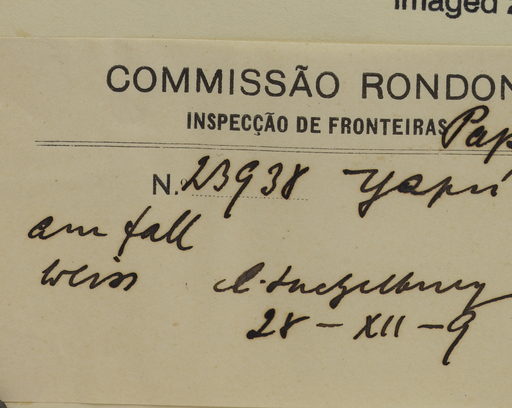 Imaged 2
COMMISSÃO RONDON
INSPECÇÃO DE FRONTEIRAS Pap
N. 23938 Yapú
am fall
weiss Luetzelburg
28 - XII - 9